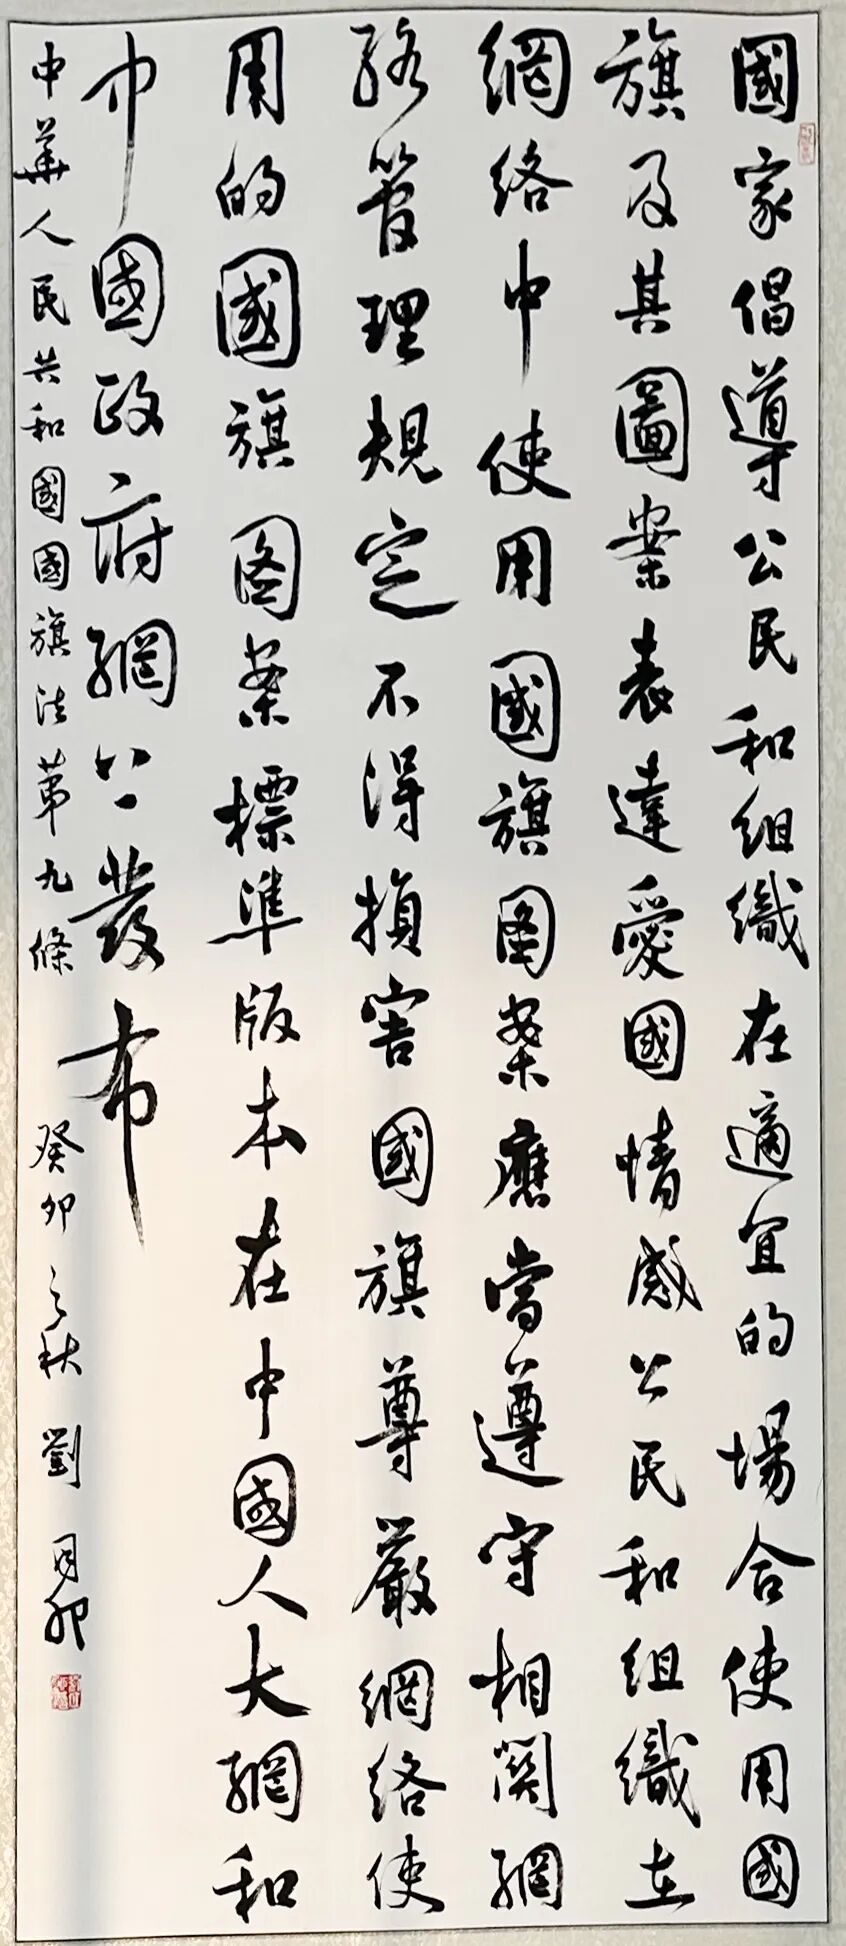 國家倡導公民和組織在適宜的場合使用國
旗及其圖案表達愛國情感公民和組織在
網络中使用國旗图案應當遵守相関網
络管理規定不得損害國旗尊嚴網络使
用的國旗图案標準版本在中國人大網和
中國政府網公發布
中華人民共和國國旗法第九條 癸卯之秋 劉